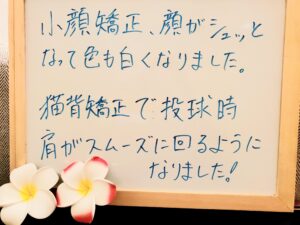 小顔矯正、顔がシュッと
なって色も白くなりました。
猫背矯正で投球時
肩がスムーズに回るように
なりました!